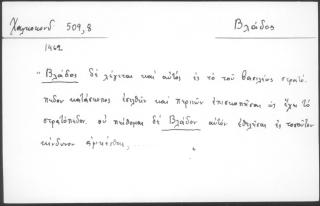 Χαλκοκονδ 509,8 Βλάδος
1462
"Βλάδος δὲ λέγεται καὶ αὐτὸς ἐς τὸ τοῦ βασιλέως στρατό-
πεδον κατάσκοπος ἐσελθὼν καὶ περιιὼν ἐπισκοπῆσαι ὡς ἔχει τὸ
στρατόπεδον. οὐ πείθομαι δὲ Βλάδον αὐτὸν ἐθελῆσαι ἐς τοσοῦτον
κίνδυνον ἀφικέσθαι, .........